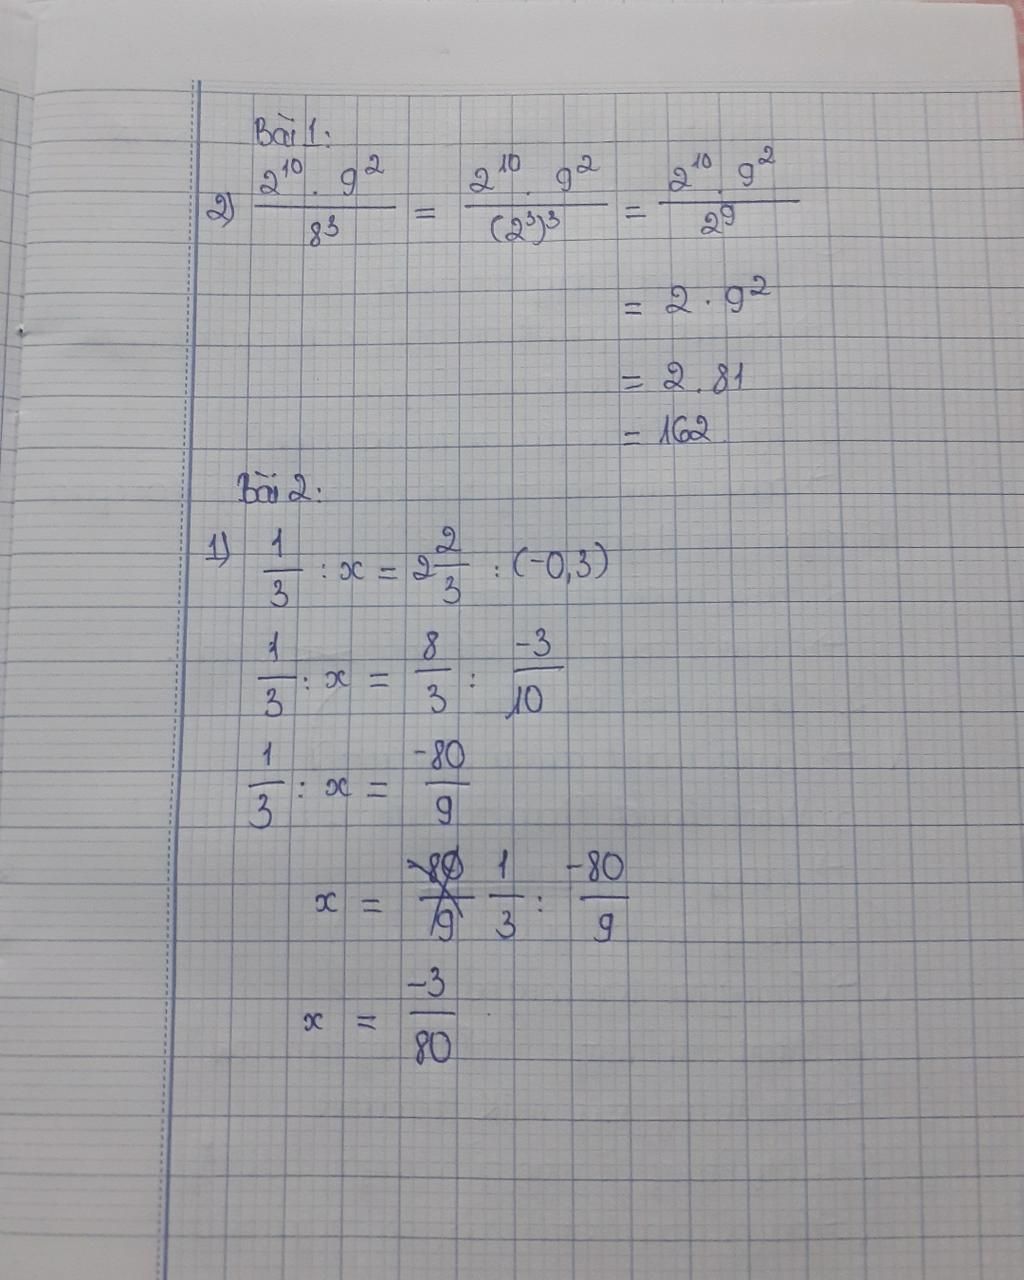 Bài 1:
2) 2^10 . 9^2 / 8^3 = 2^10 . 9^2 / (2^3)^3 = 2^10 . 9^2 / 2^9
= 2 . 9^2
= 2 . 81
= 162
Bài 2:
1) 1/3 : x = 2 2/3 : (-0,3)
1/3 : x = 8/3 : -3/10
1/3 : x = -80/9
x = 1/3 : -80/9
x = -3/80